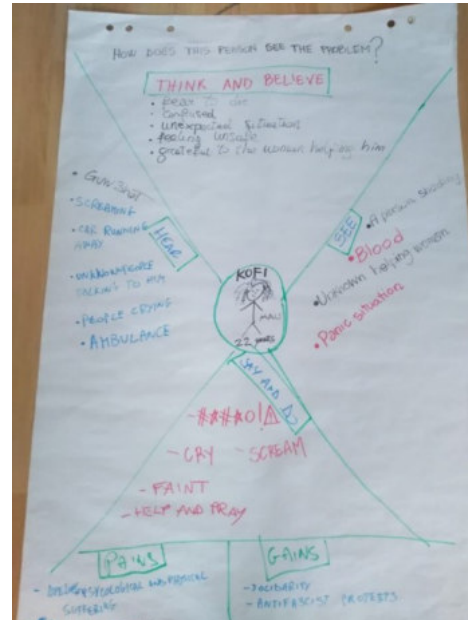 HOW DOES THIS PERSON SEE THE PROBLEM?
THINK AND BELIEVE
• fear to die
• confused
• unexpected situation
• feeling unsafe
• grateful to the woman helping him
HEAR
• GUN SHOT
• SCREAMING
• CAR RUNNING
AWAY
• UNKNOWN PEOPLE
TALKING TO HIM
• PEOPLE CRYING
• AMBULANCE
SEE
• A person shooting
• Blood
• Unknown helping woman
• Panic situation
KOFI
MALI
22 years
SAY AND DO
- #*#*O!
- CRY - SCREAM
- FAINT
- HELP AND PRAY
PAINS
PHYSICAL
SUFFERING
GAINS
- SOLIDARITY
- ANTIFASCIST PROTESTS